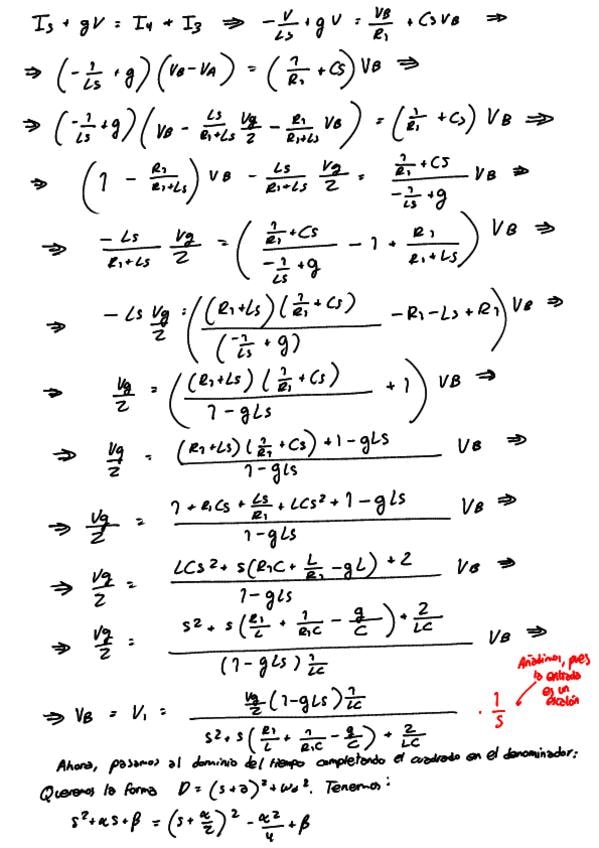 I₅ + gV = I₄ + I₃ ⇒ -V/(Ls) + gV = V_B/R₁ + CsV_B
⇒ (-1/(Ls) + g)(V_B - V_A) = (1/R₁ + Cs) V_B ⇒
⇒ (-1/(Ls) + g)(V_B - Ls/(R₁+Ls) Vg/2 - R₁/(R₁+Ls) V_B) = (1/R₁ + Cs) V_B ⇒
⇒ (1 - R₁/(R₁+Ls)) V_B - Ls/(R₁+Ls) Vg/2 = (1/R₁ + Cs)/(-1/(Ls) + g) V_B ⇒
⇒ -Ls/(R₁+Ls) Vg/2 = ((1/R₁ + Cs)/(-1/(Ls) + g) - 1 + R₁/(R₁+Ls)) V_B ⇒
⇒ -Ls Vg/2 = ((R₁+Ls)(1/R₁ + Cs)/(-1/(Ls) + g) - R₁ - Ls + R₁) V_B ⇒
⇒ Vg/2 = ((R₁+Ls)(1/R₁ + Cs)/(1 - gLs) + 1) V_B ⇒
⇒ Vg/2 = ((R₁+Ls)(1/R₁ + Cs) + 1 - gLs)/(1 - gLs) V_B ⇒
⇒ Vg/2 = (1 + R₁Cs + Ls/R₁ + LCs² + 1 - gLs)/(1 - gLs) V_B ⇒
⇒ Vg/2 = (LCs² + s(R₁C + L/R₁ - gL) + 2)/(1 - gLs) V_B ⇒
⇒ Vg/2 = (s² + s(R₁/L + 1/(R₁C) - g/C) + 2/(LC))/((1 - gLs) 1/(LC)) V_B ⇒
Añadimos, pues
la entrada
es un
escalón
⇒ V_B = V₁ = (Vg/2 (1 - gLs) 1/(LC))/(s² + s(R₁/L + 1/(R₁C) - g/C) + 2/(LC)) · 1/s
Ahora, pasamos al dominio del tiempo completando el cuadrado en el denominador:
Queremos la forma D = (s + a)² + ω₀². Tenemos:
s² + αs + β = (s + α/2)² - α²/4 + β